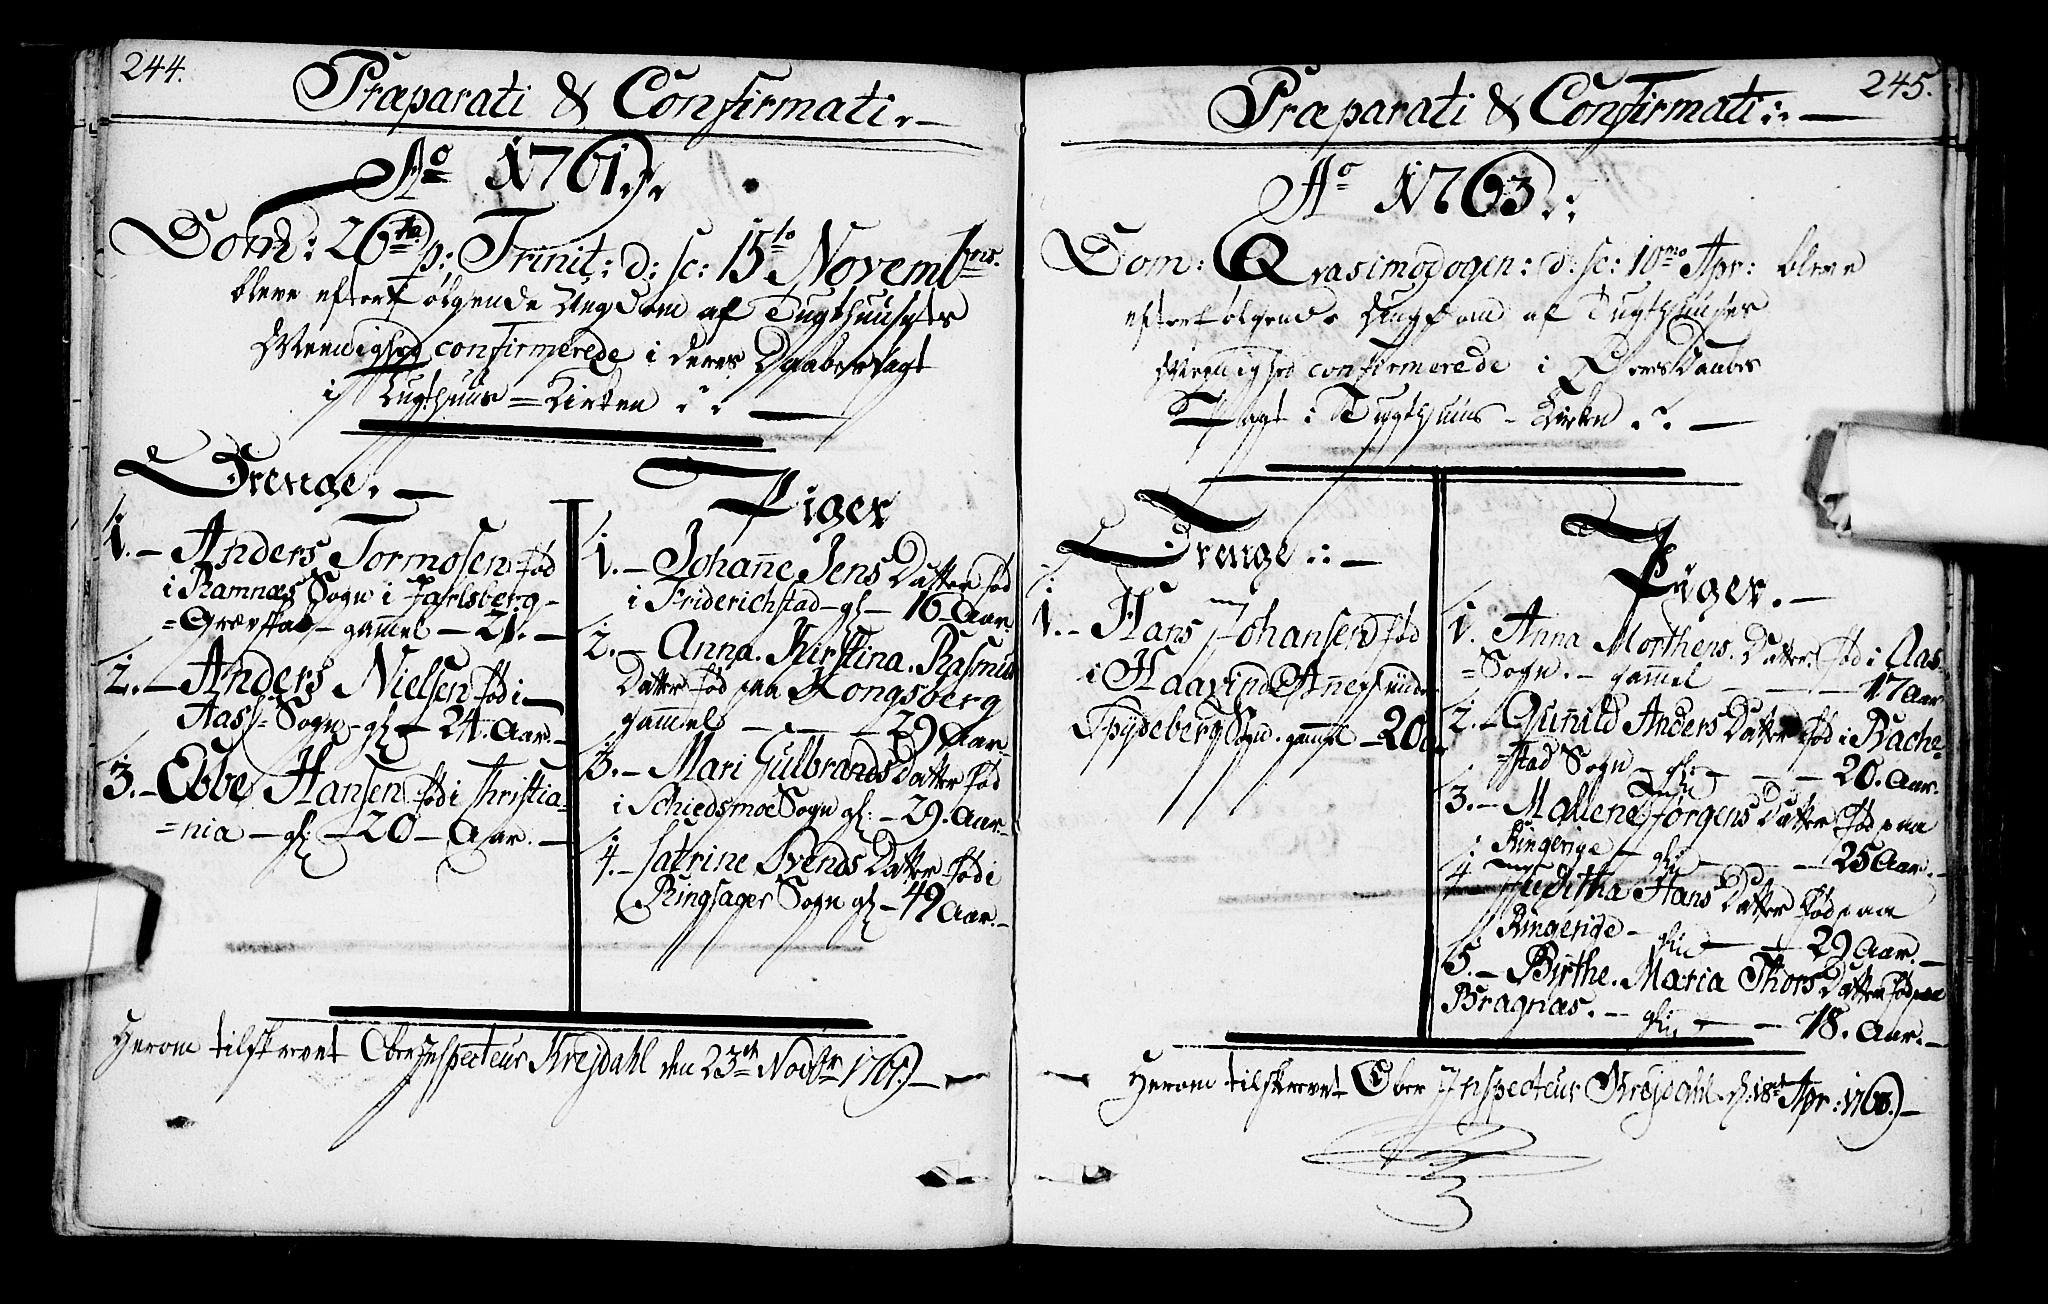 244.
Præparati & Confirmati.
Aº 1761.
Dom: 26ta p: Trinit: d: sc: 15to Novembris
bleve efterfølgende Ungdom af Tugthuusets
Menighed confirmerede i deres Daabes Pagt
i Tugthuus=Kirken
Drenge.
1. Anders Tormosen, fød
i Ramnæs Sogn i Jarlsberg
=Grævskab gam̄el 21.
2. Anders Nielsen fød i
Aass=Sogn gl: 24. Aar.
3. Ebbe Hansen fød i Christia=
=nia gl: 20 Aar.
Piger
1. Johan̄e Jens Datter fød
i Friderichstad gl: 16 Aar.
2. Anna. Kirstina. Rasmus
Datter fød paa Kongsberg
gam̄el 29 Aar
3. Mari Gulbrands Datter fød
i Schiedsmoe Sogn gl: 29. Aar.
4. Catrine Svends Datter fød i
Ringsager Sogn gl: 49 Aar.
Herom tilskrevet Ober Inspecteur Krejdahl den 23de Novbr 1761.
245.
Præparati & Confirmati:
Aº 1763.
Dom: Qvasimodogen: d: sc: 10mo Apr: bleve
efterfølgende Ungdom af Tugthuuses
Menighed confirmerede i Deres Daabes
Pagt i Tugthuus=Kirken
Drenge
1. Hans Johansen fød
i Haavind An̄ex under
Spydeberg Sogn. gam̄el 20
Piger.
1. Anna Morthens. Datter. fød i Aas.
=Sogn. gam̄el 17 Aar
2. Gun̄ild Anders Datter fød i Rache=
=stad Sogn gl: 20. Aar.
3. Mallene Jørgens Datter fød paa
Ringerige gl: 25 Aar.
4 Juditha Hans Datter fød paa
Ringerige gl: 29 Aar.
5. Birthe. Maria Thors Datter fød paa
Bragnæs. gl: 18. Aar.
Herom tilskrevet Ober Inspecteur Krejdahl d: 18de Apr: 1763.